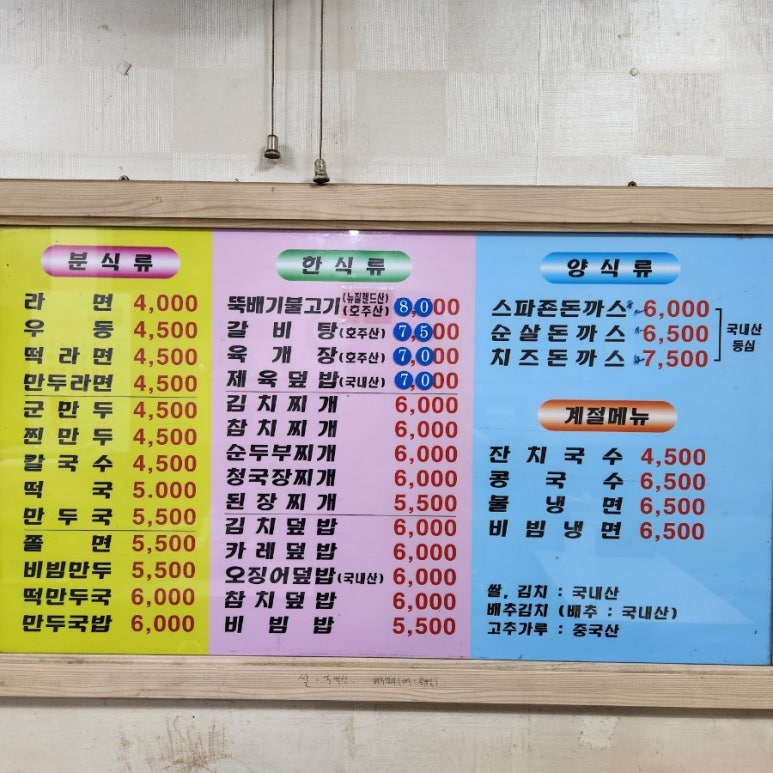 분식류
라면 4,000
우동 4,500
떡라면 4,500
만두라면 4,500
군만두 4,500
찐만두 4,500
칼국수 4,500
떡국 5.000
만두국 5,500
쫄면 5,500
비빔만두 5,500
떡만두국 6,000
만두국밥 6,000
한식류
뚝배기불고기 (뉴질랜드산) (호주산) 8,000
갈비탕 (호주산) 7,500
육개장 (호주산) 7,000
제육덮밥 (국내산) 7,000
김치찌개 6,000
참치찌개 6,000
순두부찌개 6,000
청국장찌개 6,000
된장찌개 5,500
김치덮밥 6,000
카레덮밥 6,000
오징어덮밥 (국내산) 6,000
참치덮밥 6,000
비빔밥 5,500
양식류
스파죤돈까스 6,000
순살돈까스 6,500
치즈돈까스 7,500
국내산
등심
계절메뉴
잔치국수 4,500
콩국수 6,500
물냉면 6,500
비빔냉면 6,500
쌀, 김치 : 국내산
배추김치 (배추 : 국내산)
고추가루 : 중국산